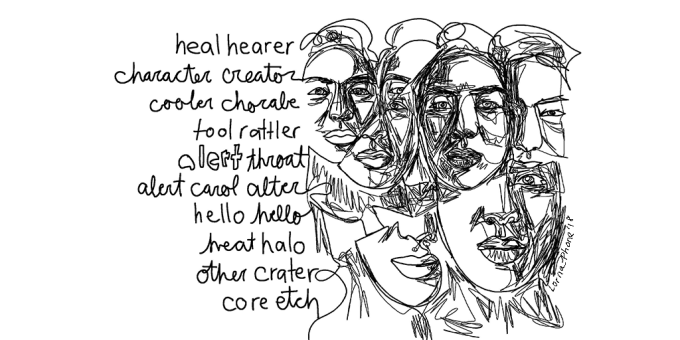 heal hearer
character creator
cooler chorale
tool rattler
a left throat
alert carol alter
hello hello
heat halo
other crater
core etch